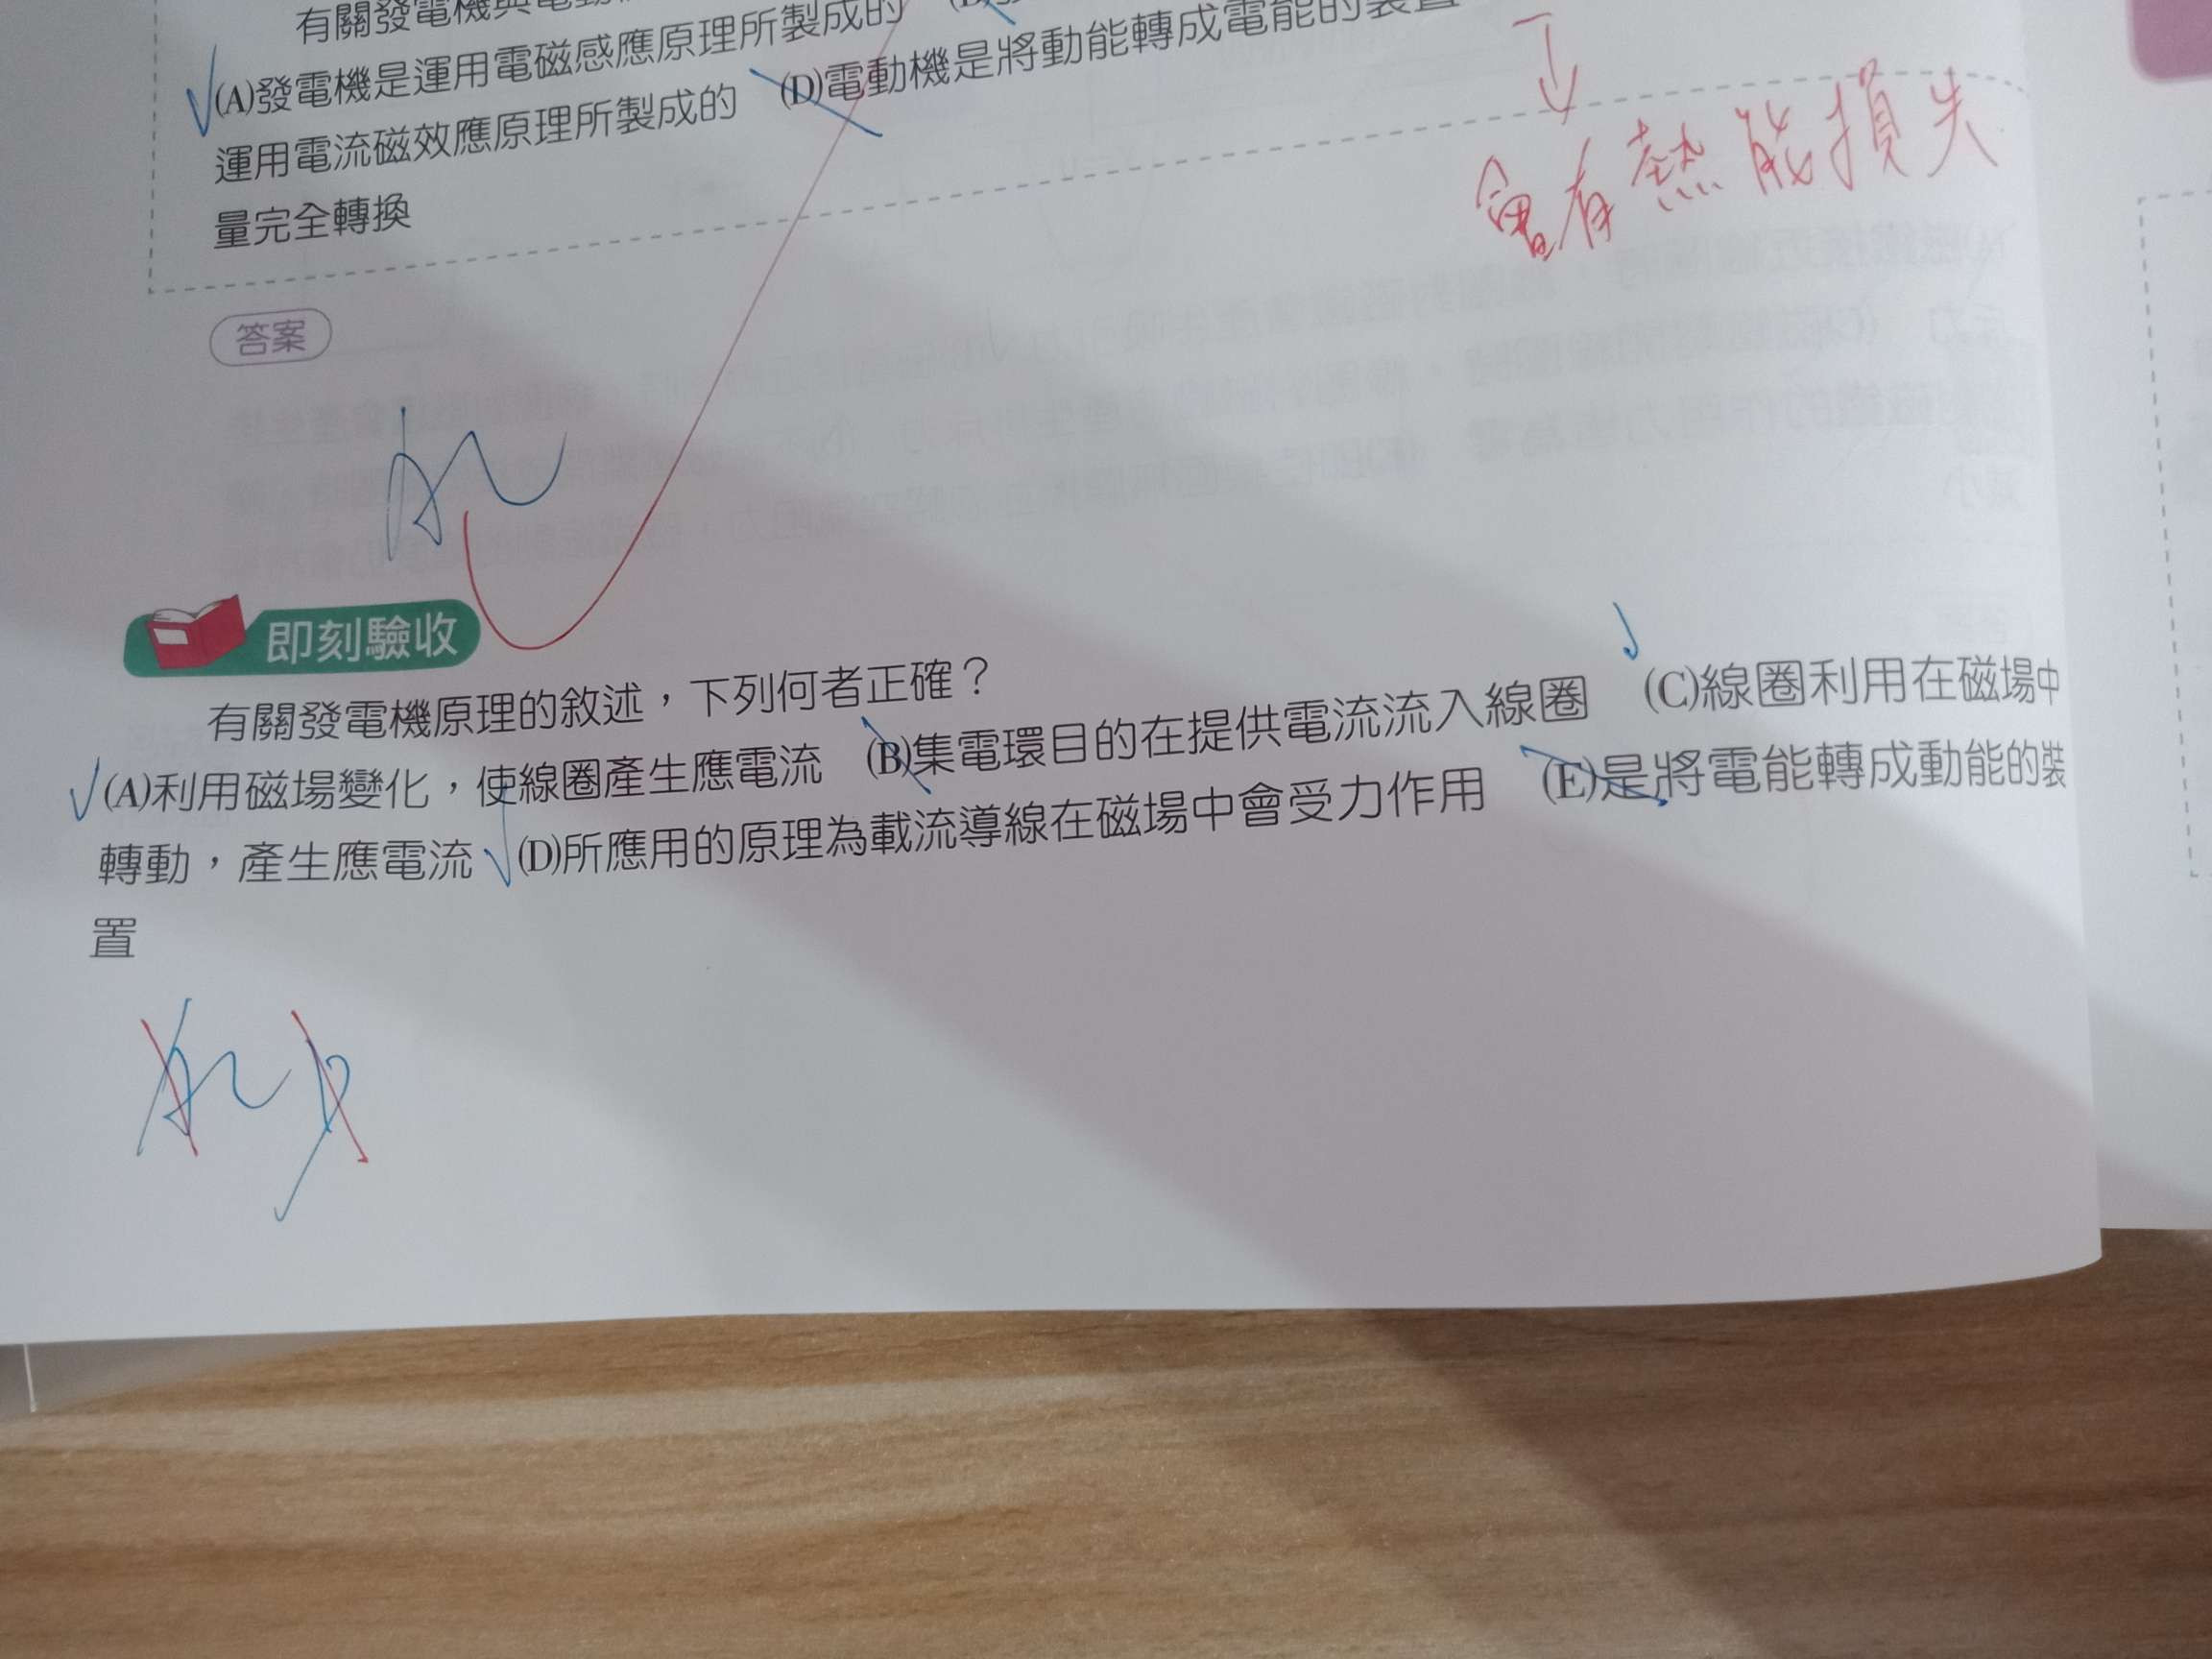 有關發電機與電動
(A)發電機是運用電磁感應原理所製成的
運用電流磁效應原理所製成的 (D)電動機是將動能轉成電能的裝置
量完全轉換
會有熱能損失
答案
AC
即刻驗收
有關發電機原理的敘述，下列何者正確？
(A)利用磁場變化，使線圈產生應電流 (B)集電環目的在提供電流流入線圈 (C)線圈利用在磁場中
轉動，產生應電流 (D)所應用的原理為載流導線在磁場中會受力作用 (E)是將電能轉成動能的裝
置